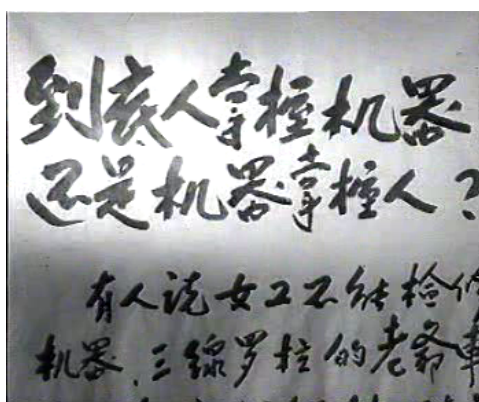 到底人掌握机器
还是机器掌握人？
有人说女工不能检修
机器．三線罗拉的老爺車